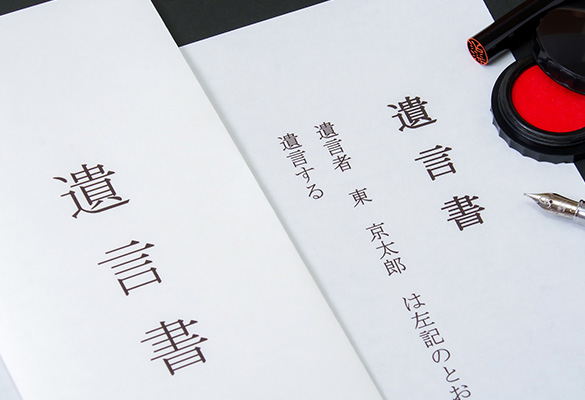 遺言書
遺言書
遺言者　東　京太郎　は左記のとお
遺言する